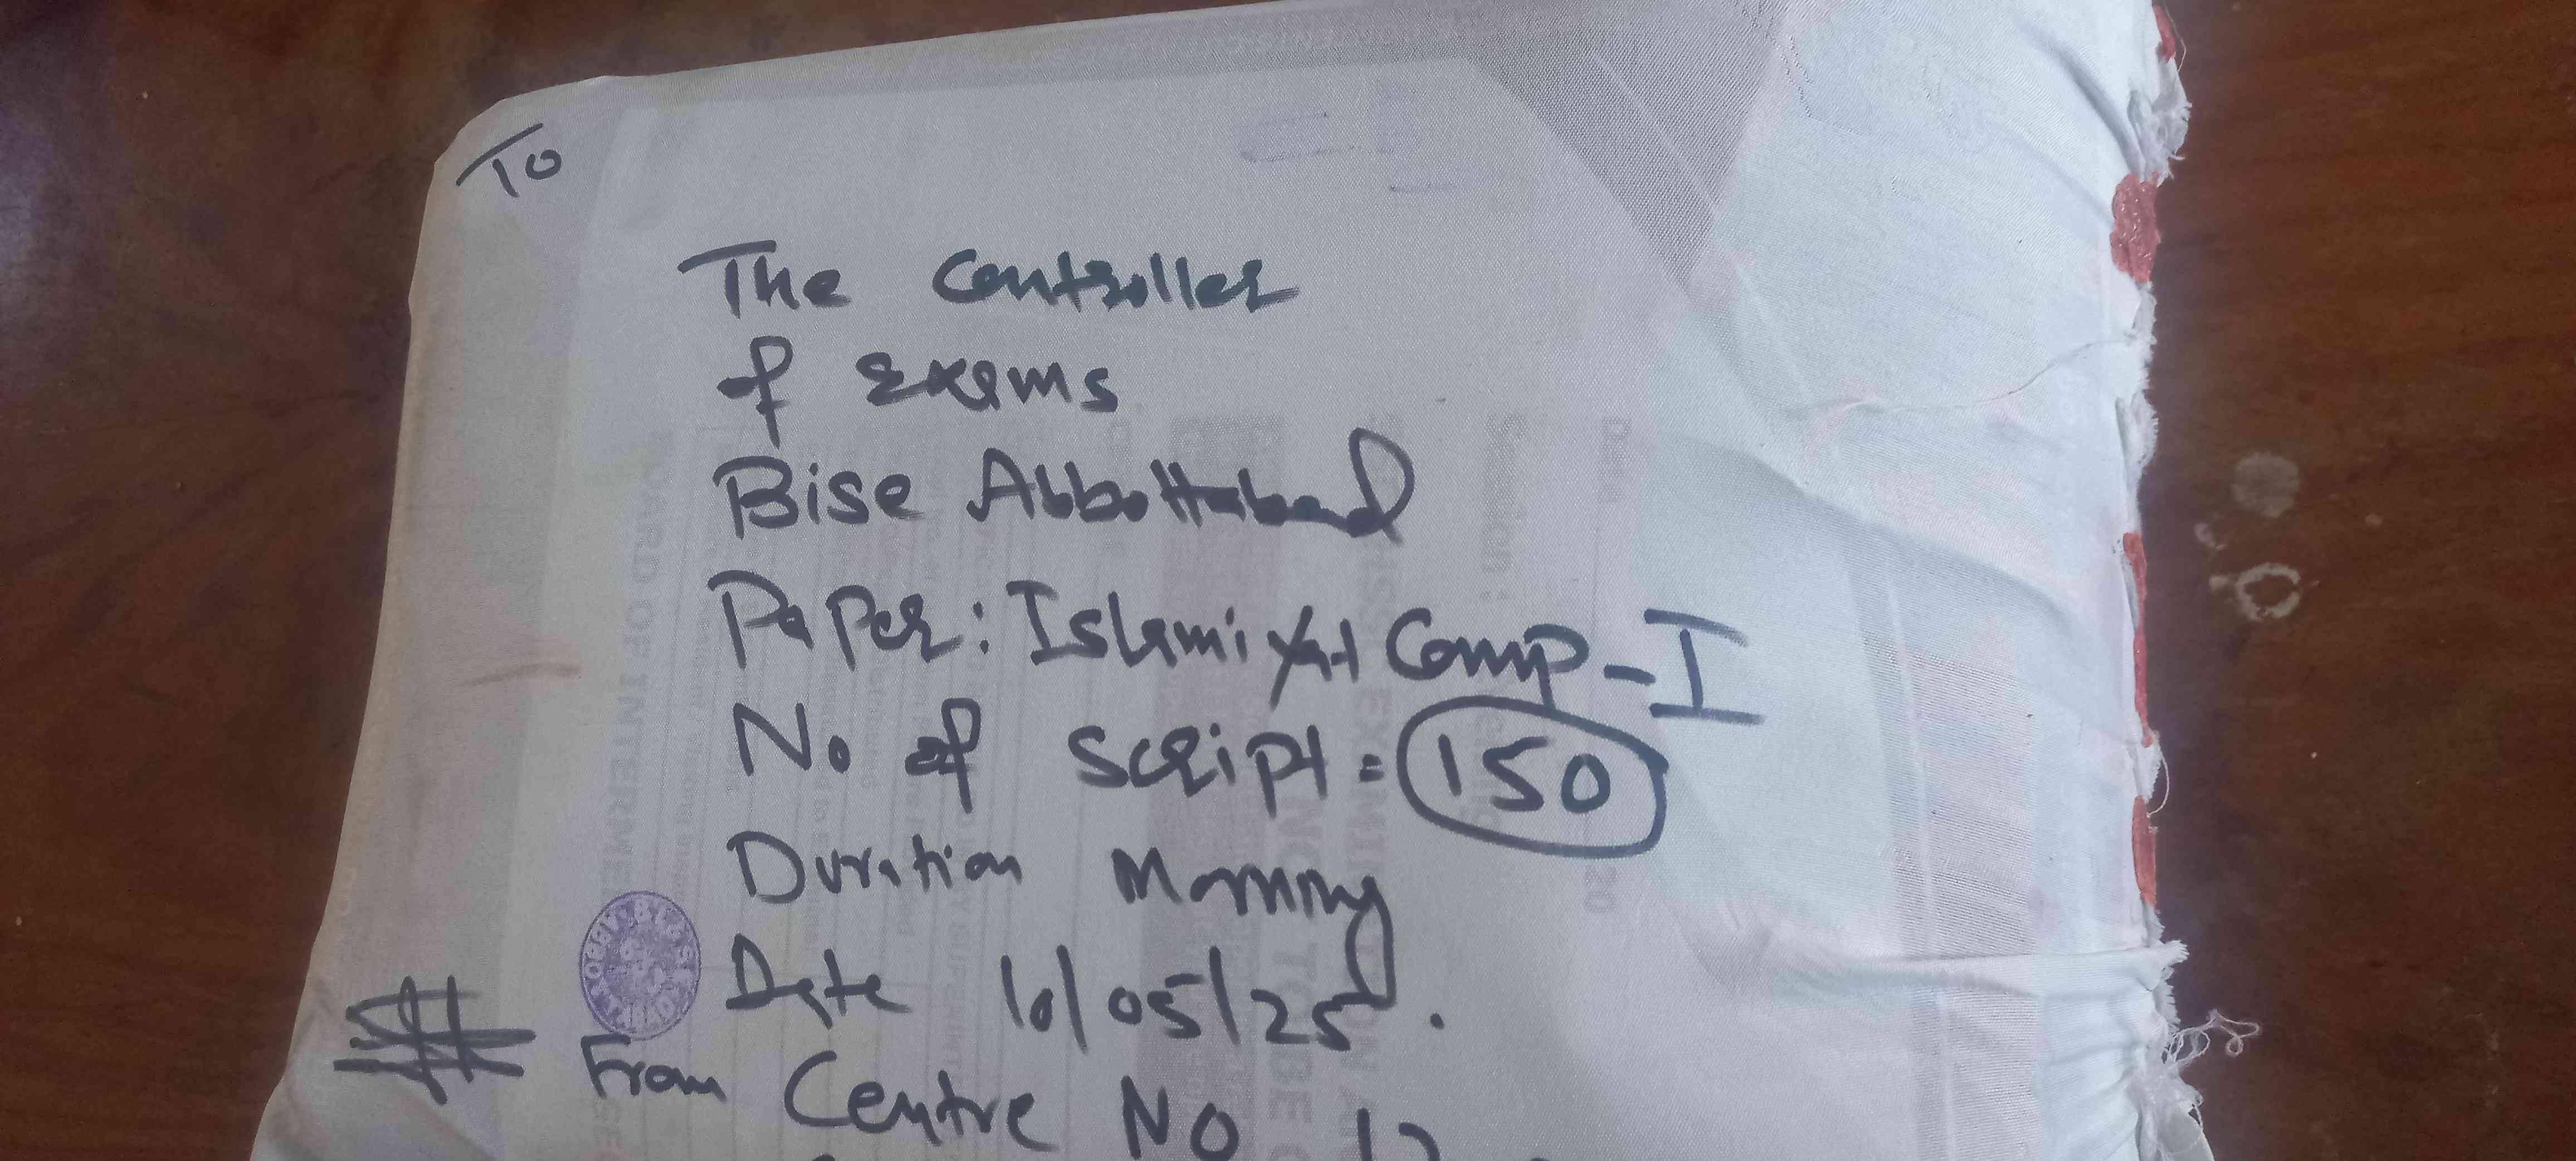 To
The Controller
of Exams
Bise Abbottabad
Paper: Islamiyat Comp-I
No of script = 150
Duration Morning
Date 10/05/25.
From Centre No